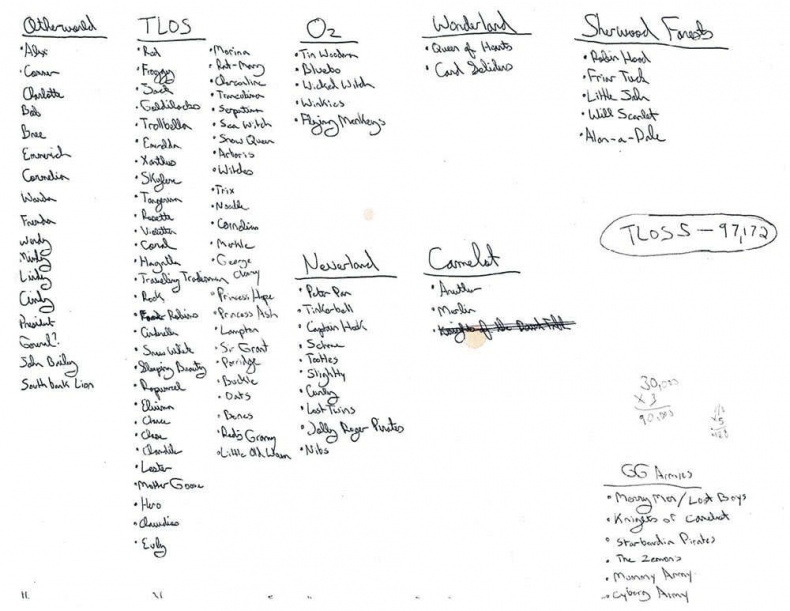 Otherworld
• Alex
• Conner
Charlotte
Bob
Bree
Emmerich
Cornelia
Wanda
Frenda
Wendy
Mindy
Lindy
Cindy
President
John Bailey
Southbank Lion
TLOS
• Red
• Froggy
• Jack
• Goldilocks
• Trollbella
• Emerelda
• Xanthous
• Skylene
• Tangerina
• Rosette
• Violetta
• Coral
• Hagetta
• Traveling Tradesman
• Rook
• Robins
• Cinderella
• Snow White
• Sleeping Beauty
• Rapunzel
• Chance
• Chase
• Chandler
• Lester
• Mother Goose
• Hero
• Claudius
• Evly
• Morina
• Rat-Mary
• Charcoaline
• Tarantulene
• Serpentina
• Sea Witch
• Snow Queen
• Arboris
• Witches
• Trix
• Noodle
• Cornelius
• Merkle
• George
• Princess Hope
• Princess Ash
• Lampton
• Sir Grant
• Porridge
• Buckle
• Oats
• Bones
• Red's Granny
• Little Old Woman
Oz
• Tin Woodman
• Bluebo
• Wicked Witch
• Winkies
• Flying Monkeys
Neverland
• Peter Pan
• Tinkerbell
• Captain Hook
• Tootles
• Slightly
• Curly
• Lost Twins
• Jolly Roger Pirates
• Nibs
Wonderland
• Queen of Hearts
• Card Soldiers
Camelot
• Arthur
• Merlin
Sherwood Forests
• Robin Hood
• Friar Tuck
• Little John
• Will Scarlet
• Alan-a-Dale
TLOS 5 - 97,172
30,000
x 3
90,000
GG Armies
• Merry Men/Lost Boys
• Knights of Camelot
• Starboardia Pirates
• The Zemons
• Mummy Army
• Cyborg Army